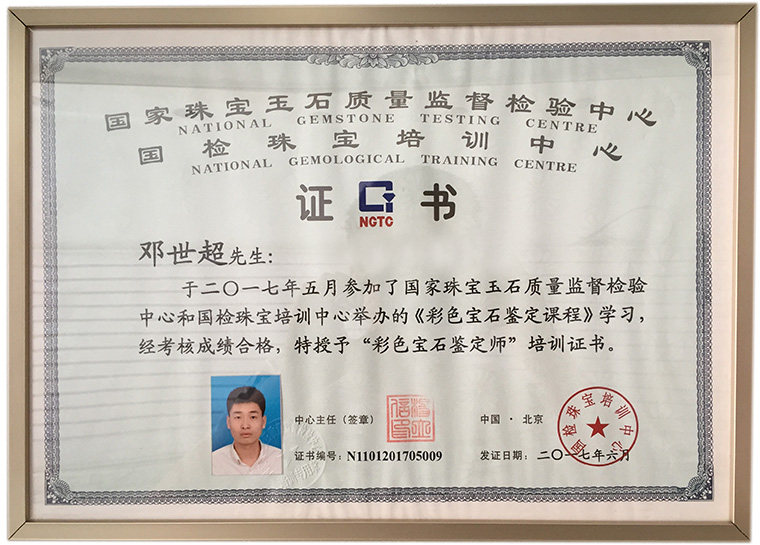 国家珠宝玉石质量监督检验中心
NATIONAL GEMSTONE TESTING CENTRE
国检珠宝培训中心
NATIONAL GEMOLOGICAL TRAINING CENTRE
证 书
NGTC
邓世超先生:
于二〇一七年五月参加了国家珠宝玉石质量监督检验
中心和国检珠宝培训中心举办的《彩色宝石鉴定课程》学习,
经考核成绩合格,特授予“彩色宝石鉴定师”培训证书。
中心主任(签章)
中国·北京
国检珠宝培训中心
证书编号: N1101201705009
发证日期: 二〇一七年六月